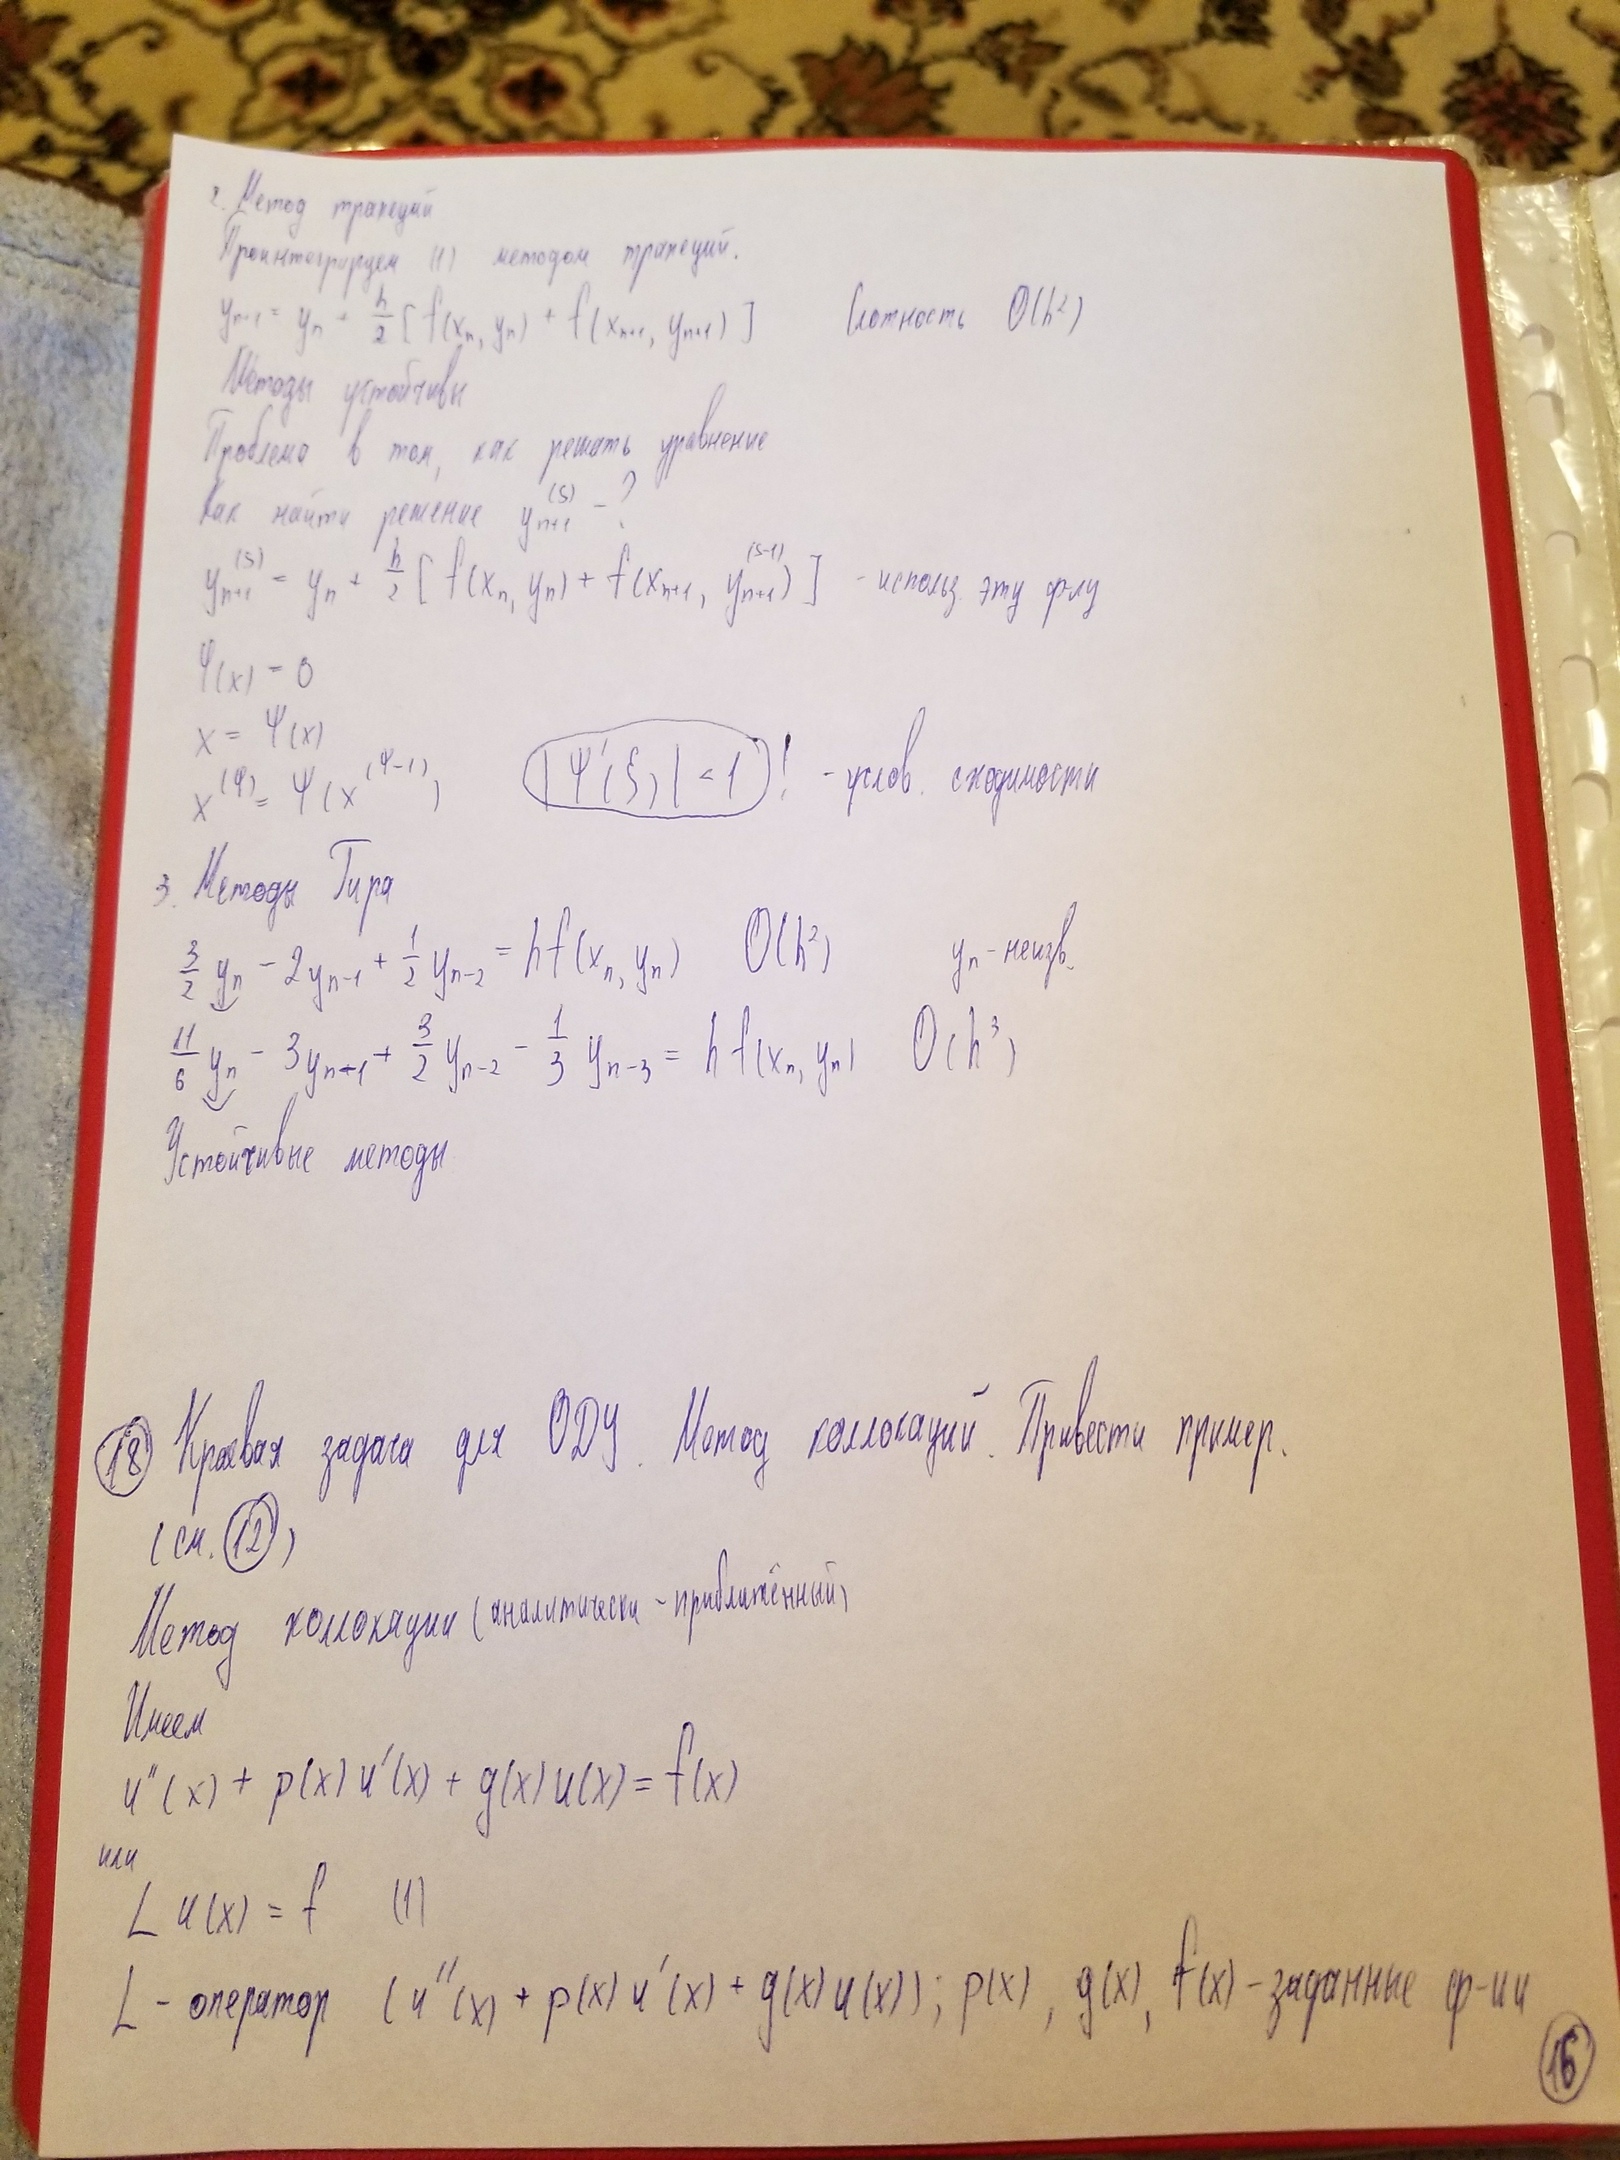 2. Метод трапеций
Проинтегрируем (1) методом трапеций.
yₙ₊₁ = yₙ + h/2 [f(xₙ, yₙ) + f(xₙ₊₁, yₙ₊₁)] Точность O(h²)
Методы устойчивы
Проблема в том, как решать уравнение
Как найти решение yₙ₊₁⁽ˢ⁾ - ?
yₙ₊₁⁽ˢ⁾ = yₙ + h/2 [f(xₙ, yₙ) + f(xₙ₊₁, yₙ₊₁⁽ˢ⁻¹⁾)] - использ. эту ф-лу
φ(x) = 0
x = Ψ(x)
x^(φ) = Ψ(x^(φ-1)) |Ψ'(ξ)| < 1 ! - услов. сходимости
3. Методы Гира
3/2 yₙ - 2yₙ₋₁ + 1/2 yₙ₋₂ = hf(xₙ, yₙ) O(h²) yₙ - неизв.
11/6 yₙ - 3yₙ₊₁ + 3/2 yₙ₋₂ - 1/3 yₙ₋₃ = hf(xₙ, yₙ) O(h³)
Устойчивые методы
18 Краевая задача для ОДУ. Метод коллокаций. Привести пример.
(см. 12)
Метод коллокации (аналитически - приближённый)
Имеем
u''(x) + p(x)u'(x) + g(x)u(x) = f(x)
или
L u(x) = f (1)
L - оператор (u''(x) + p(x)u'(x) + g(x)u(x)); p(x), g(x), f(x) - заданные ф-ии
16